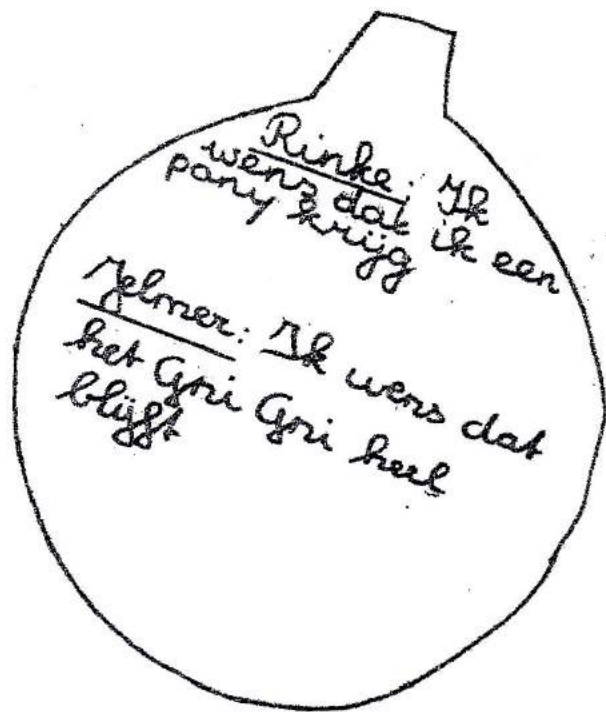 Rinke: Ik
wens dat ik een
pony krijg
Jelmer: Ik wens dat
het Gri Gri heel
blijft